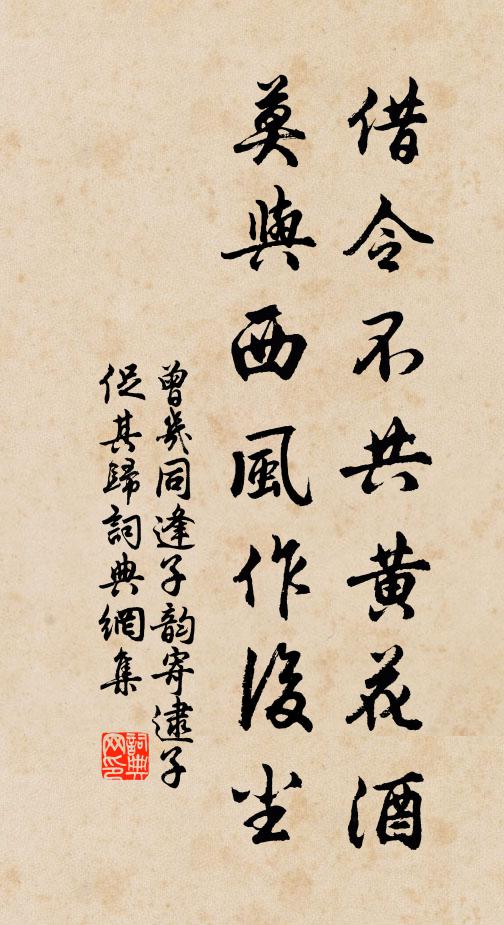 借令不共黃花酒
莫與西風作後尘
曾幾同逢子韵寄逮子
促其歸詞典網集
詞典網印